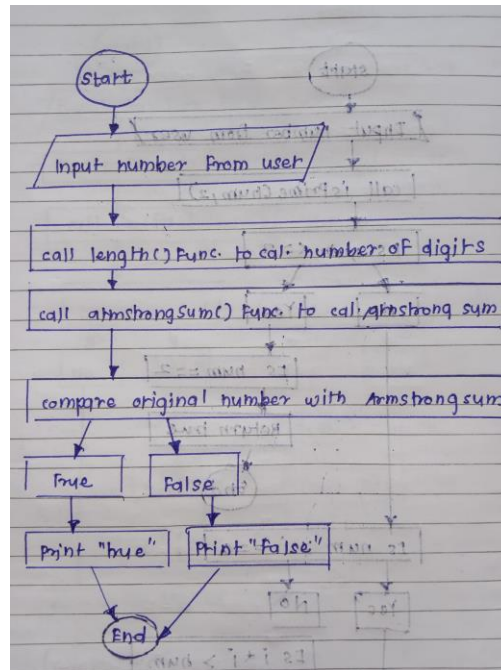 Start
Input number From user
call length() Func. to cal. number of digits
call armstrongSum() Func. to cal. Armstrong sum
compare original number with Armstrong sum
True False
Print "true" Print "False"
End